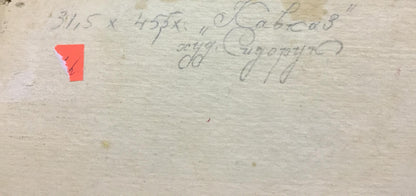 31,5 х 45,5х. „Кавказ"
худ. Сидорук